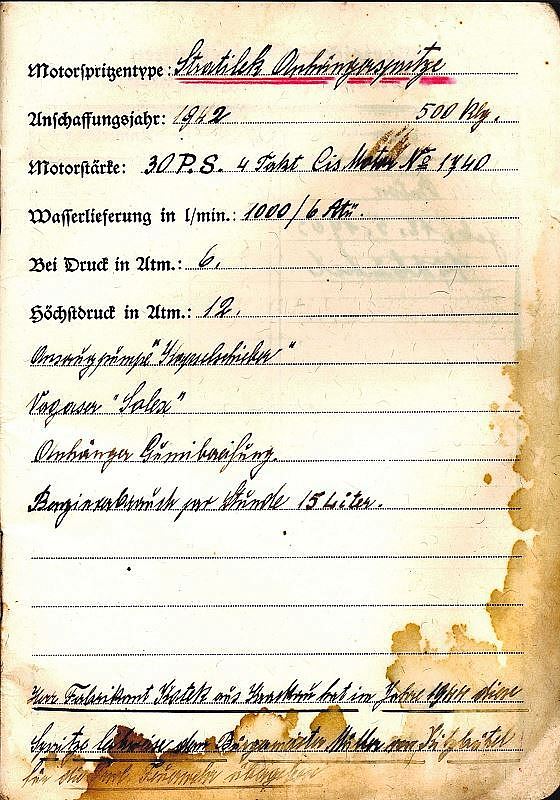 Motorspritzentype: Stratilek Anhängespritze
Anschaffungsjahr: 1942 500 Klg.
Motorstärke: 30 P.S. 4 Takt Motor No 1740
Wasserlieferung in l/min.: 1000/6 Atü.
Bei Druck in Atm.: 6.
Höchstdruck in Atm.: 12.
Ansaugpumpe "Kapselschieber"
Vergaser "Solex"
Anhänger Gumibereifung.
Benzinverbrauch per Stunde 15 Liter.
Herr Fabrikant aus hat im Jahre 1944 diese
Spritze dem Bürgermeister Müller von
für die Feuerwehr